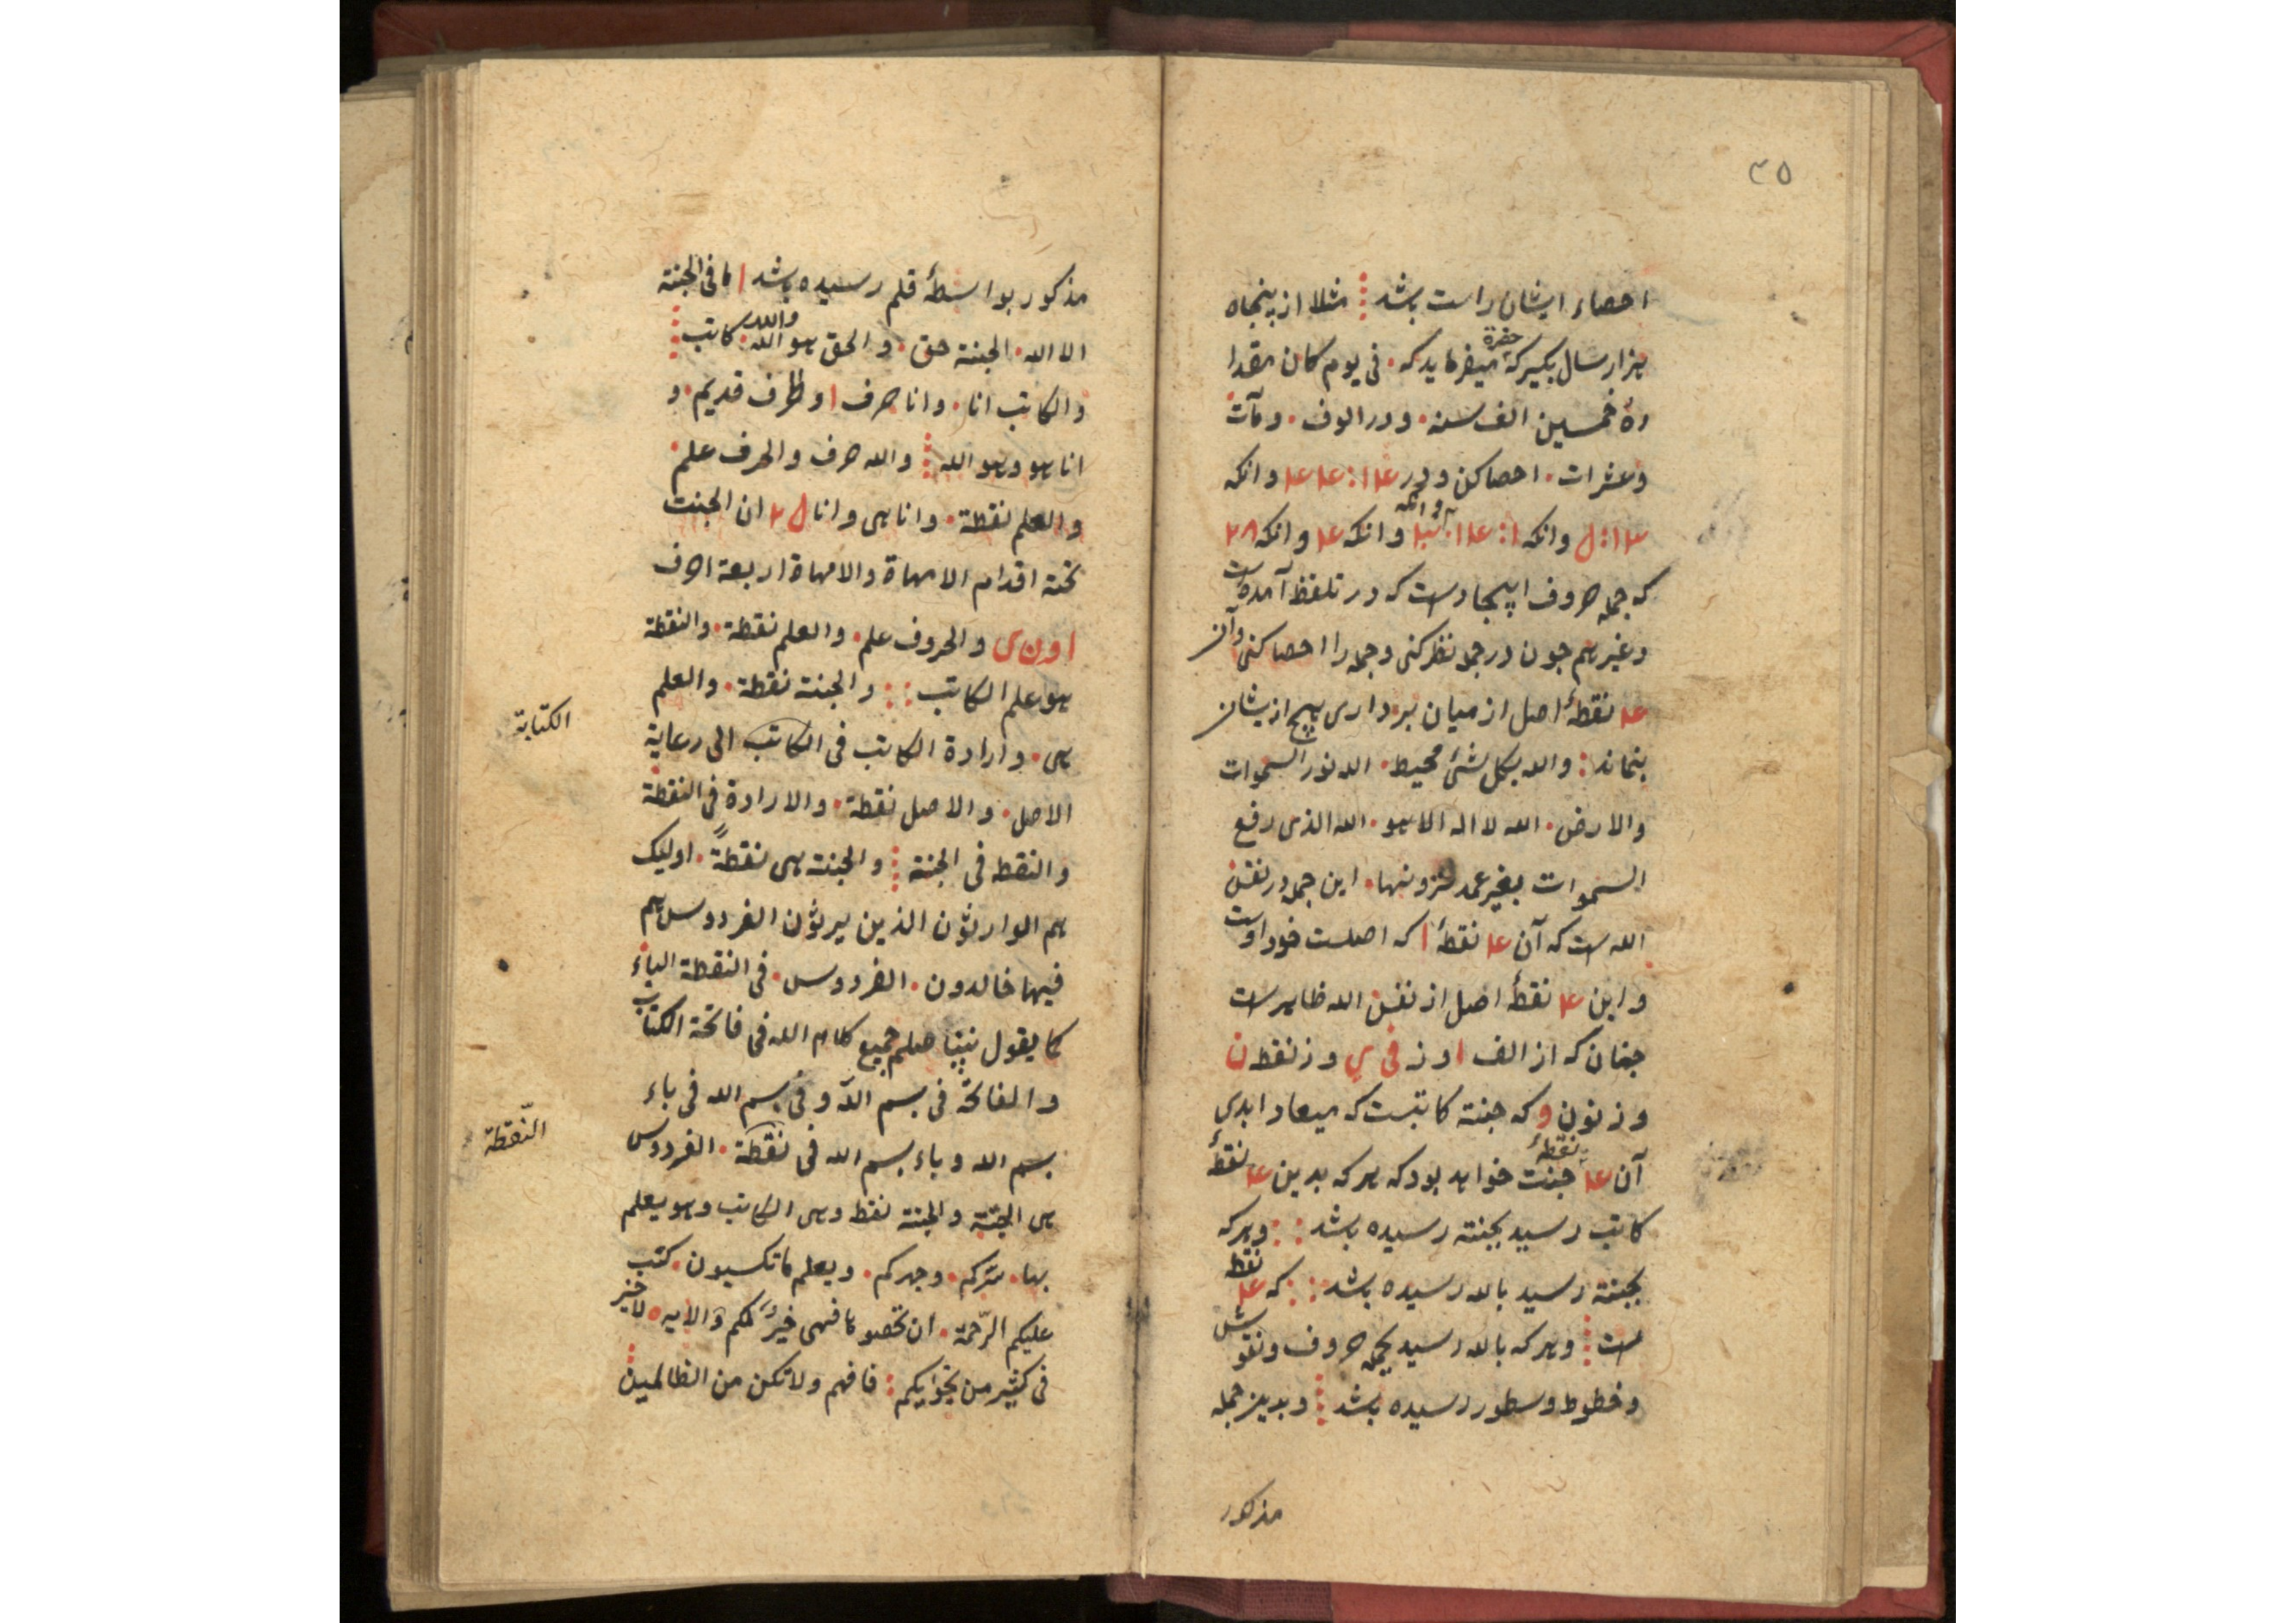 ٣٥
احصاء ایشان راست باشد مثلا از پنجاه
هزار سال بکیر که حضرة میفرماید که فی یوم کان مقدا
ره خمسین الف سنه و در الوف و مآت
و عشرات احصا کن و در وانکه
وانکه وانکه وانکه
که جمله حروف اپیجاد است که در تلفظ آمده است
و غیرهم جون در جمله نظر کنی و جمله را احصا کنی و آن
نقطهٔ اصل از میان برداری هیچ از یشان
بنماند والله بکل شئ محیط الله نور السموات
والارض الله لا اله الا هو الله الذی رفع
السموات بغیر عمد ترونها این جمله در نفس
الله است که آن ۴ نقطهٔ ا که اصلست خود اوست
و این ۴ نقطهٔ اصل از نفس الله ظاهر است
جنان که از الف ا و ز فی ی و ز نقطه ن
و ز نون و که جنته کاتبست که میعاد ابدی
آن ۴ نقطهٔ جنت خواهد بود که هر که بدین ۴ نقطهٔ
کاتب رسید بجنته رسیده باشد و هر که
بجنته رسید بالله رسیده باشد که ۴ نقطه
است و هر که بالله رسید بجمله حروف و نقوش
و خطوط و سطور رسیده باشد و بدین جمله
مذکور
مذکور بواسطهٔ قلم رسیده باشد ا ما فی الجنته
الا الله الجنته حق والحق هو الله والله کاتب
والکاتب انا وانا حرف ا و ظرف قدیم و
انا هو وهو الله والله حرف والحرف علم
والعلم نقطة وانا هی وانا ان الجنت
تحته اقدام الامهاة والامهاة اربعة احرف
ا و ن ی والحروف علم والعلم نقطة والنقطة
هو علم الکاتب والجنته نقطة والعلم
هی وارادة الکاتب فی الکاتب الی رعایة
الکتابة
الاصل والاصل نقطة والارادة فی النقطة
والنقط فی الجنة والجنته هی نقطةً اولیک
هم الوارثون الذین یرثون الفردوس هم
فیها خالدون الفردوس فی النقطة الباء
کما یقول نبینا صلم جمیع کلام الله فی فاتحة الکتاب
والفاتحة فی بسم الله و فی بسم الله فی باء
بسم الله و باء بسم الله فی نقطة الفردوس
النّقطة
هی الجنّة والجنته نقط وهی الکاتب وهو یعلم
بها سّرکم وجهرکم ویعلم ما تکسبون کتب
علیکم الرّحمة ان تحصوا فهی خیرٌ لکم والایه لا خیر
فی کثیر من نجوایکم فافهم ولا تکن من الظالمین